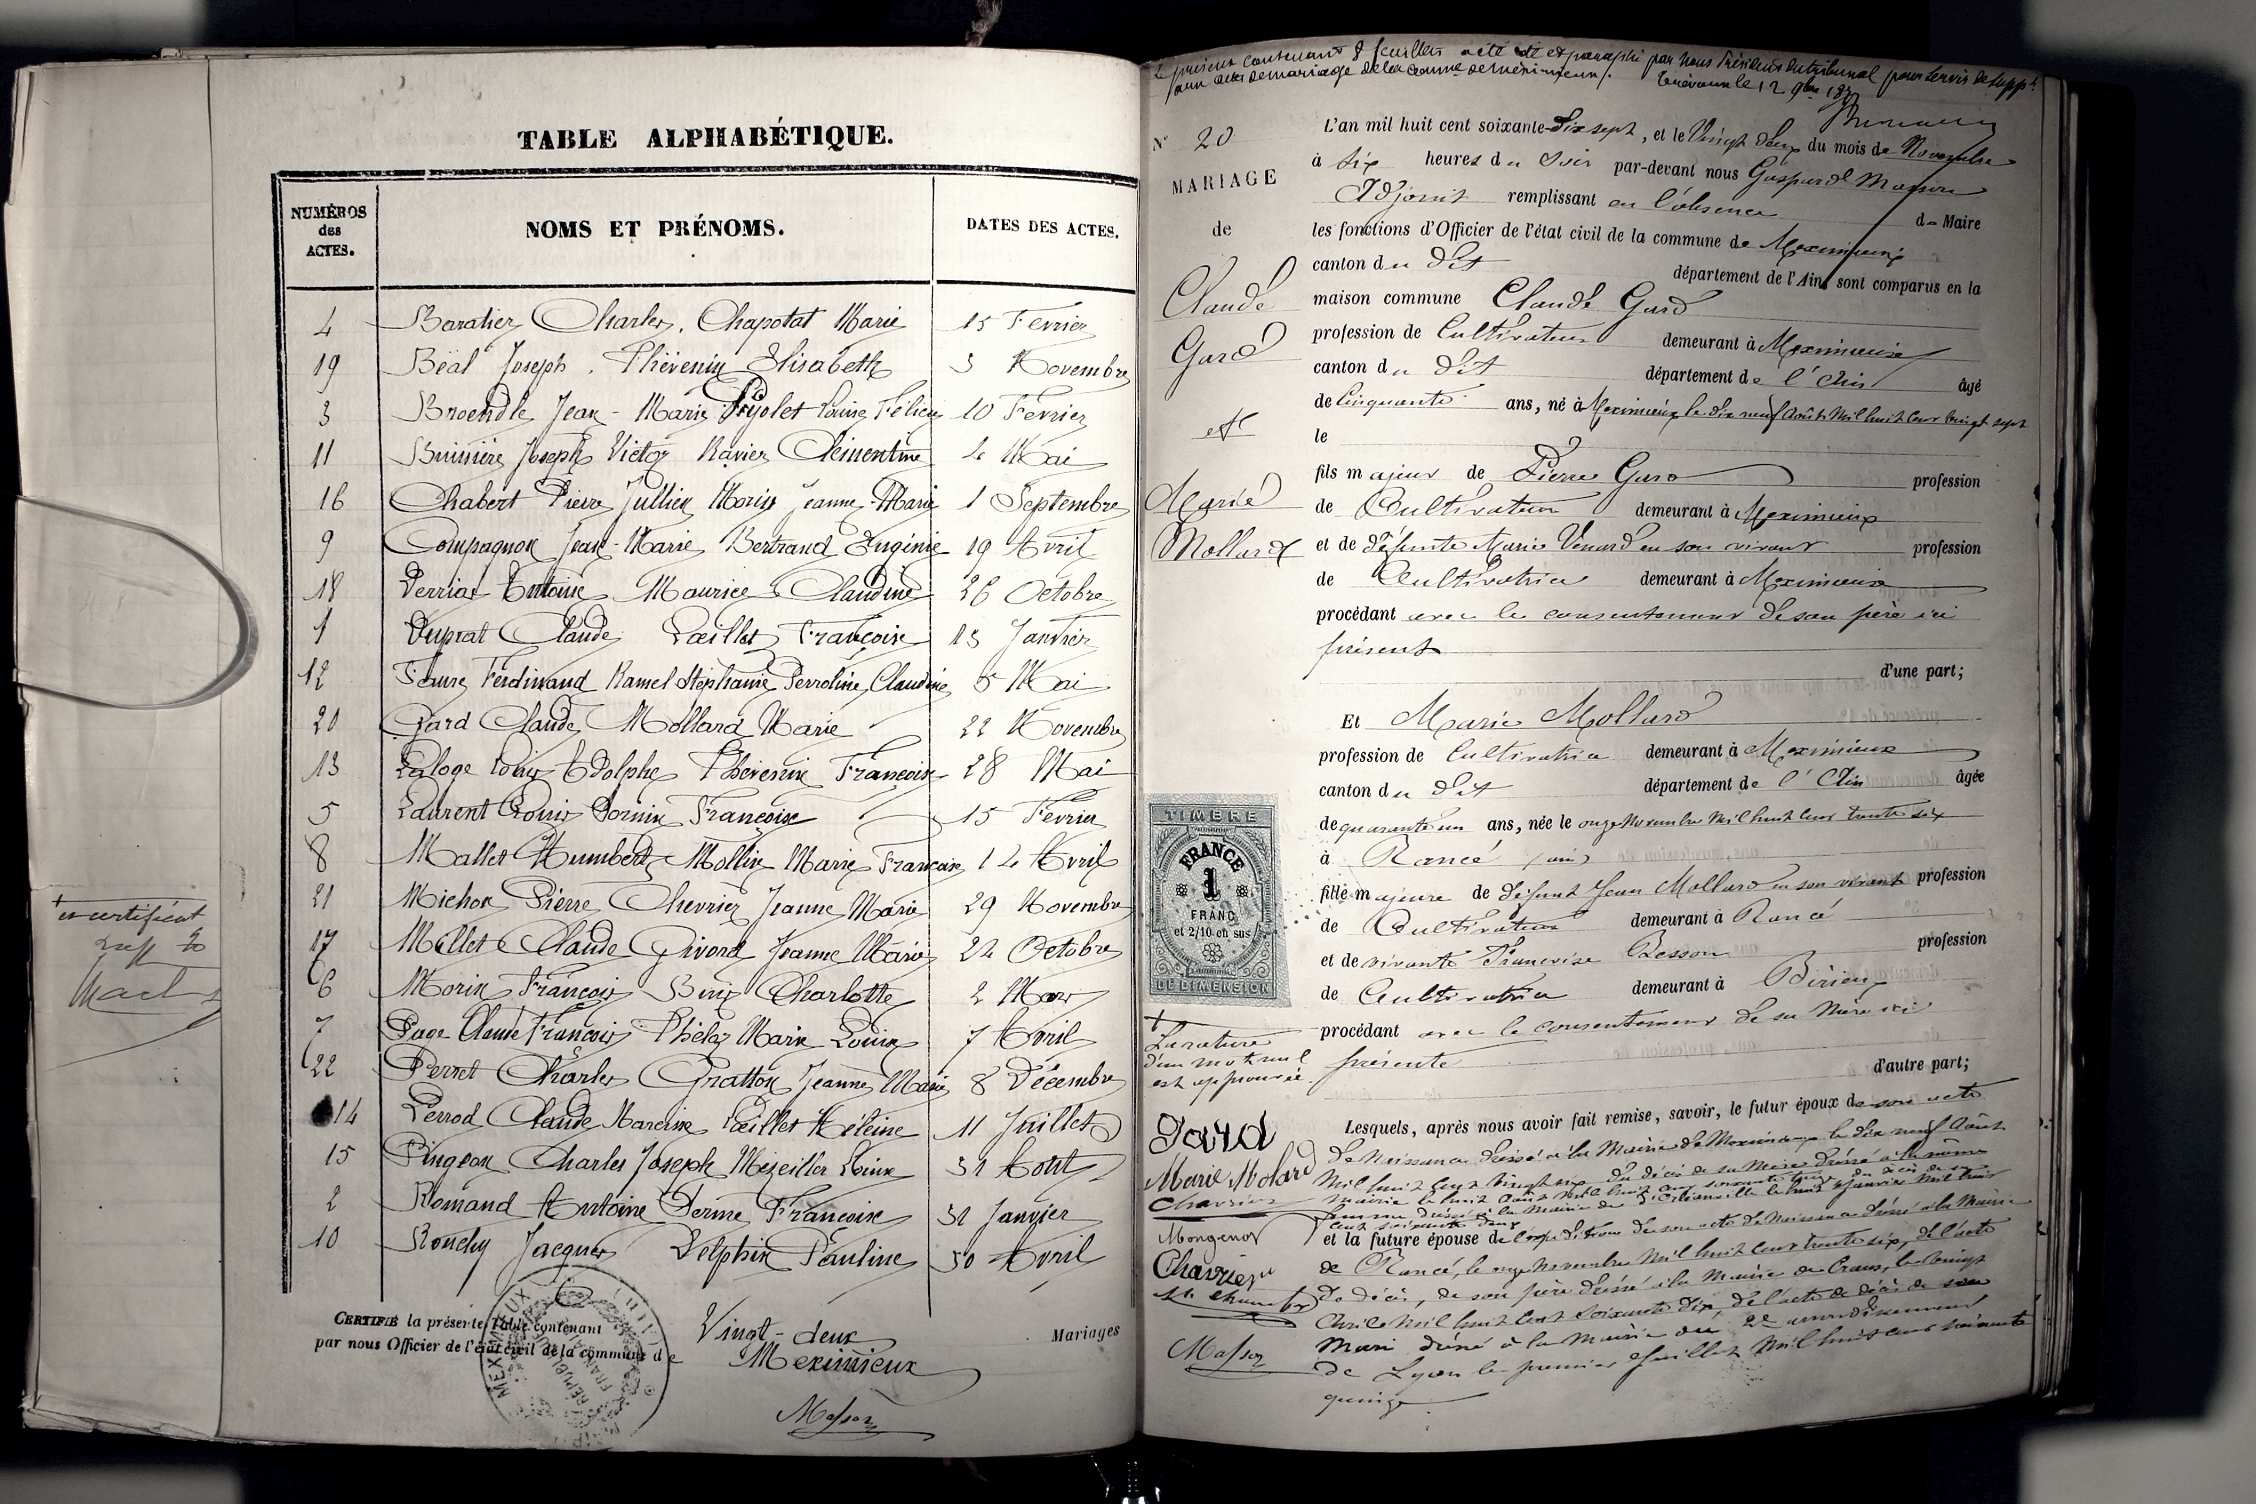 TABLE ALPHABÉTIQUE.
NUMÉROS des ACTES. NOMS ET PRÉNOMS. DATES DES ACTES.
4 Baratier Charles. Chapotat Marie 15 Février
19 Béal Joseph. Thévenin Elisabeth 3 Novembre
3 Broendle Jean-Marie Louise 10 Février
11 Joseph Victor Ravier Clémentine Mai
16 Chabert Pierre Jullien Morin Jeanne-Marie 1 Septembre
9 Compagnon Jean-Marie Bertrand Eugénie 19 Avril
18 Antoine Maurice Claudine 26 Octobre
1 Duprat Claude Œillet Françoise 13 Janvier
12 Faure Ferdinand Ramel Stéphanie Perroline Claudine 5 Mai
20 Gard Claude Mollard Marie 22 Novembre
13 Laloge Louis Adolphe Thévenin Françoise 28 Mai
5 Laurent Louis Françoise 15 Février
8 Mallet Humbert Mollin Marie Françoise 14 Avril
21 Michon Pierre Chevrier Jeanne Marie 29 Novembre
17 Millet Claude Givord Jeanne Marie 24 Octobre
6 Morin François Charlotte 2 Mars
7 Page Claude François Marie Louise 7 Avril
22 Perret Charles Gratton Jeanne Marie 8 Décembre
14 Perrod Claude Œillet Hélène 11 Juillet
15 Pingeon Charles Joseph 31 Août
2 Romand Antoine Françoise 31 Janvier
10 Rouchy Jacques Delphin Pauline 30 Avril
CERTIFIÉ la présente Table contenant Vingt-deux Mariages
par nous Officier de l'état civil de la commune de Meximieux
Masson
Le présent contenant 8 feuillets a été coté et paraphé par nous Président du tribunal pour servir de suppt
aux actes de mariage de la commune de Meximieux.
Trévoux le 12 9bre 187
N° 20
MARIAGE
de
Claude
Gard
et
Marie
Mollard
L'an mil huit cent soixante-dix sept, et le Vingt deux du mois de Novembre
à six heures du soir par-devant nous Gaspard Masson
Adjoint remplissant en l'absence d Maire
les fonctions d'Officier de l'état civil de la commune de Meximieux
canton du dit département de l'Ain sont comparus en la
maison commune Claude Gard
profession de Cultivateur demeurant à Meximieux
canton du dit département de l'Ain âgé
de Cinquante ans, né à Meximieux le dix neuf Août mil huit cent vingt sept
le
fils majeur de Pierre Gard profession
de Cultivateur demeurant à Meximieux
et de défunte Marie Venard en son vivant profession
de Cultivatrice demeurant à Meximieux
procédant avec le consentement de son père ici
présent
d'une part;
Et Marie Mollard
profession de Cultivatrice demeurant à Meximieux
canton du dit département de l'Ain âgée
de quarante un ans, née le onze Novembre mil huit cent trente six
à Rancé (ain)
fille majeure de défunt Jean Mollard en son vivant profession
de Cultivateur demeurant à Rancé
et de vivante Françoise Besson profession
de Cultivatrice demeurant à Birieux
procédant avec le consentement de sa Mère ici
présente
d'autre part;
TIMBRE
FRANCE
1
FRANC
et 2/10 en sus
DE DIMENSION
La rature
d'un mot nul
est approuvée.
Gard
Marie Molard
Mongenot
Chavrier
Masson
Lesquels, après nous avoir fait remise, savoir, le futur époux de son acte
de Naissance dressé à la Mairie de Meximieux le dix neuf Août
mil huit cent vingt sept du décès de sa Mère dressé à la même
mairie le huit Août mil huit cent soixante
femme dressé à la mairie de le huit Janvier mil huit
cent soixante deux
et la future épouse de l'expédition de son acte de Naissance dressé à la Mairie
de Rancé, le onze Novembre mil huit cent trente six, de l'acte
de décès, de son père dressé à la mairie de Crans, le vingt
Avril mil huit cent soixante dix, de l'acte de décès de son
Mari dressé à la mairie du 2e arrondissement
de Lyon le premier Juillet mil huit cent soixante
quinze